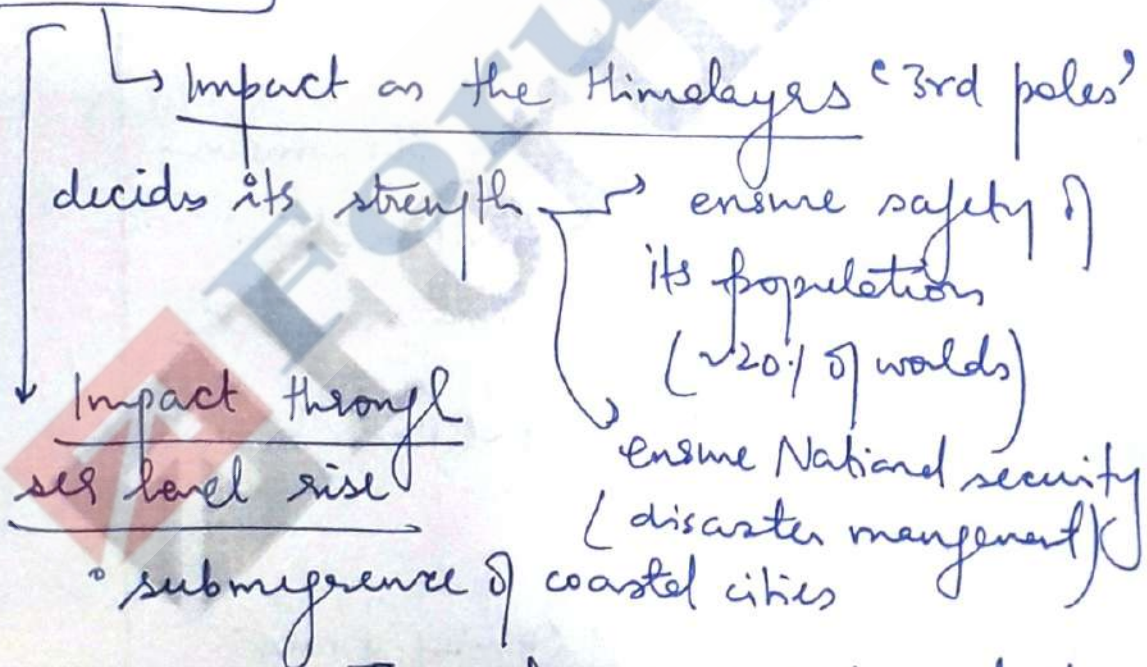 Impact on the Himalayas '3rd poles'
decides its strength
ensure safety of
its population
(~20% of worlds)
ensure National security
(disaster mangement)
Impact through
sea level rise
• submergence of coastal cities